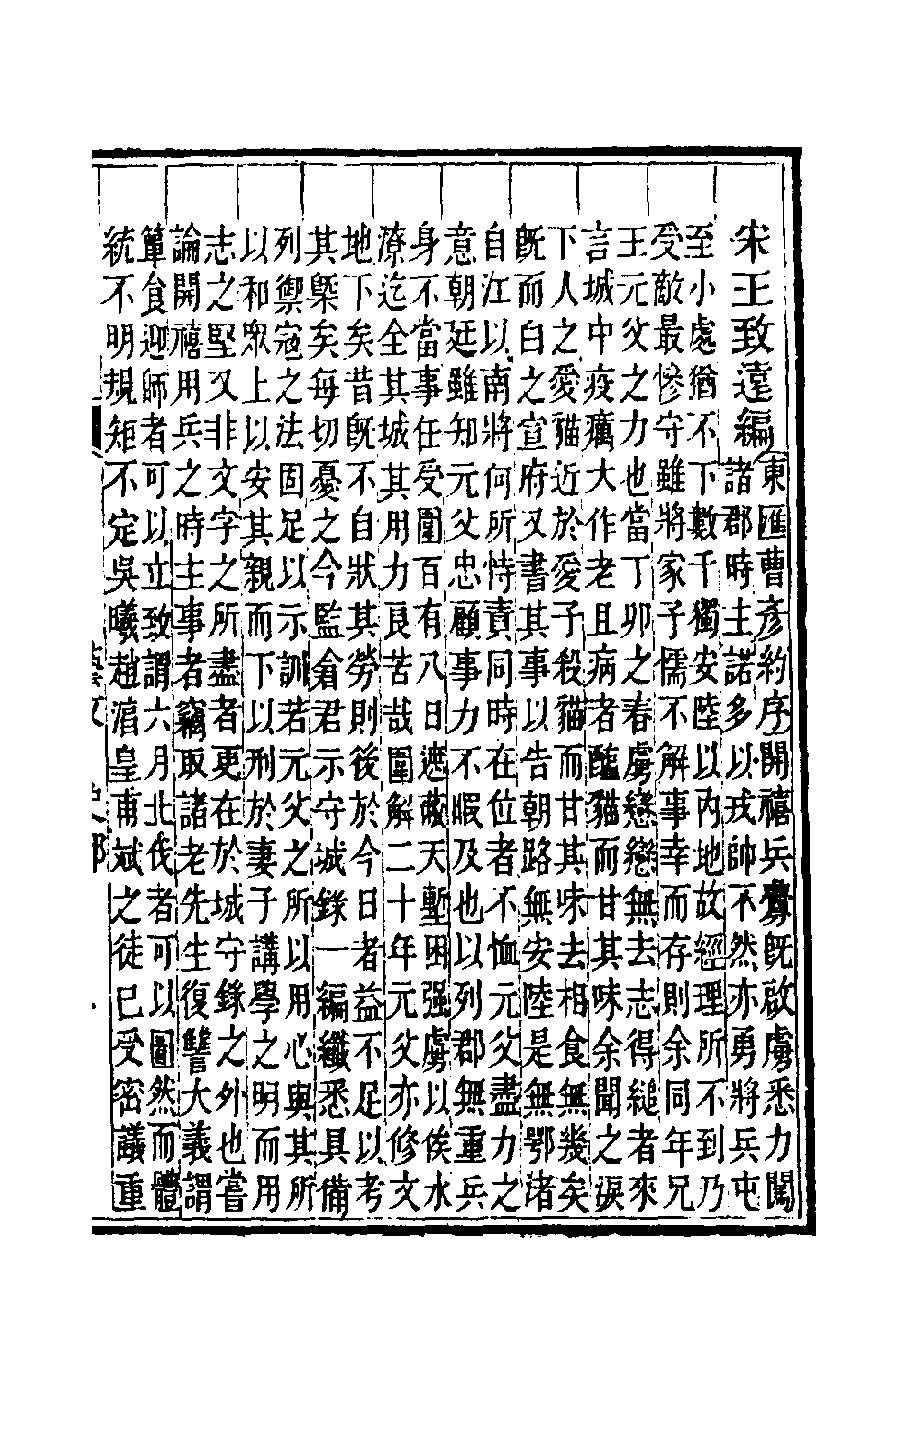 宋王致遠編
東匯曹彥約序開禧兵釁既啟虜悉力闖
諸郡時土諾多以戎帥不然亦勇將兵屯
至小處猶不下數千獨安陸以內地故經理所不到乃
受敵最慘守雖將家子懦不解事幸而存則余同年兄
王元父之力也當丁卯之春虜戀戀無去志得縋者來
言城中疫癘大作老且病者醢貓而甘其味余聞之淚
下人之愛貓近於愛子殺貓而甘其味去相食無幾矣
既而白之宣府又書其事以告朝路無安陸是無鄂渚
自江以南將何所恃責同時在位者不恤元父盡力之
意朝廷雖知元父忠顧事力不暇及也以列郡無重兵
身不當事任受圍百有八日遮蔽天塹困强虜以俟水
潦迄全其城其用力良苦哉圍解二十年元父亦修文
地下矣昔既不自狀其勞則後於今日者益不足以考
其槩矣每切憂之今監倉君示守城錄一編纖悉具備
列禦寇之法固足以示訓若元父之所以用心與其所
以和眾上以安其親而下以刑於妻子講學之明而用
志之堅又非文字之所盡者更在於城守錄之外也嘗
論開禧用兵之時主事者竊取諸老先生復讐大義謂
簞食迎師者可以立致謂六月北伐者可以圖然而體
統不明規矩不定吳曦趙皇甫斌之徒已受密議重